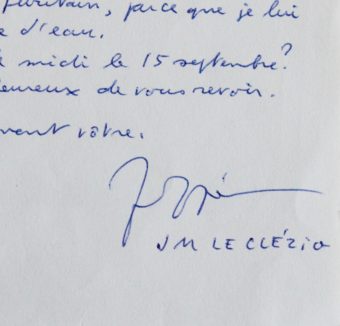 puritain, parce que je lui
d'eau.
midi le 15 septembre?
heureux de vous revoir.
vôtre.
JM LE CLÉZIO